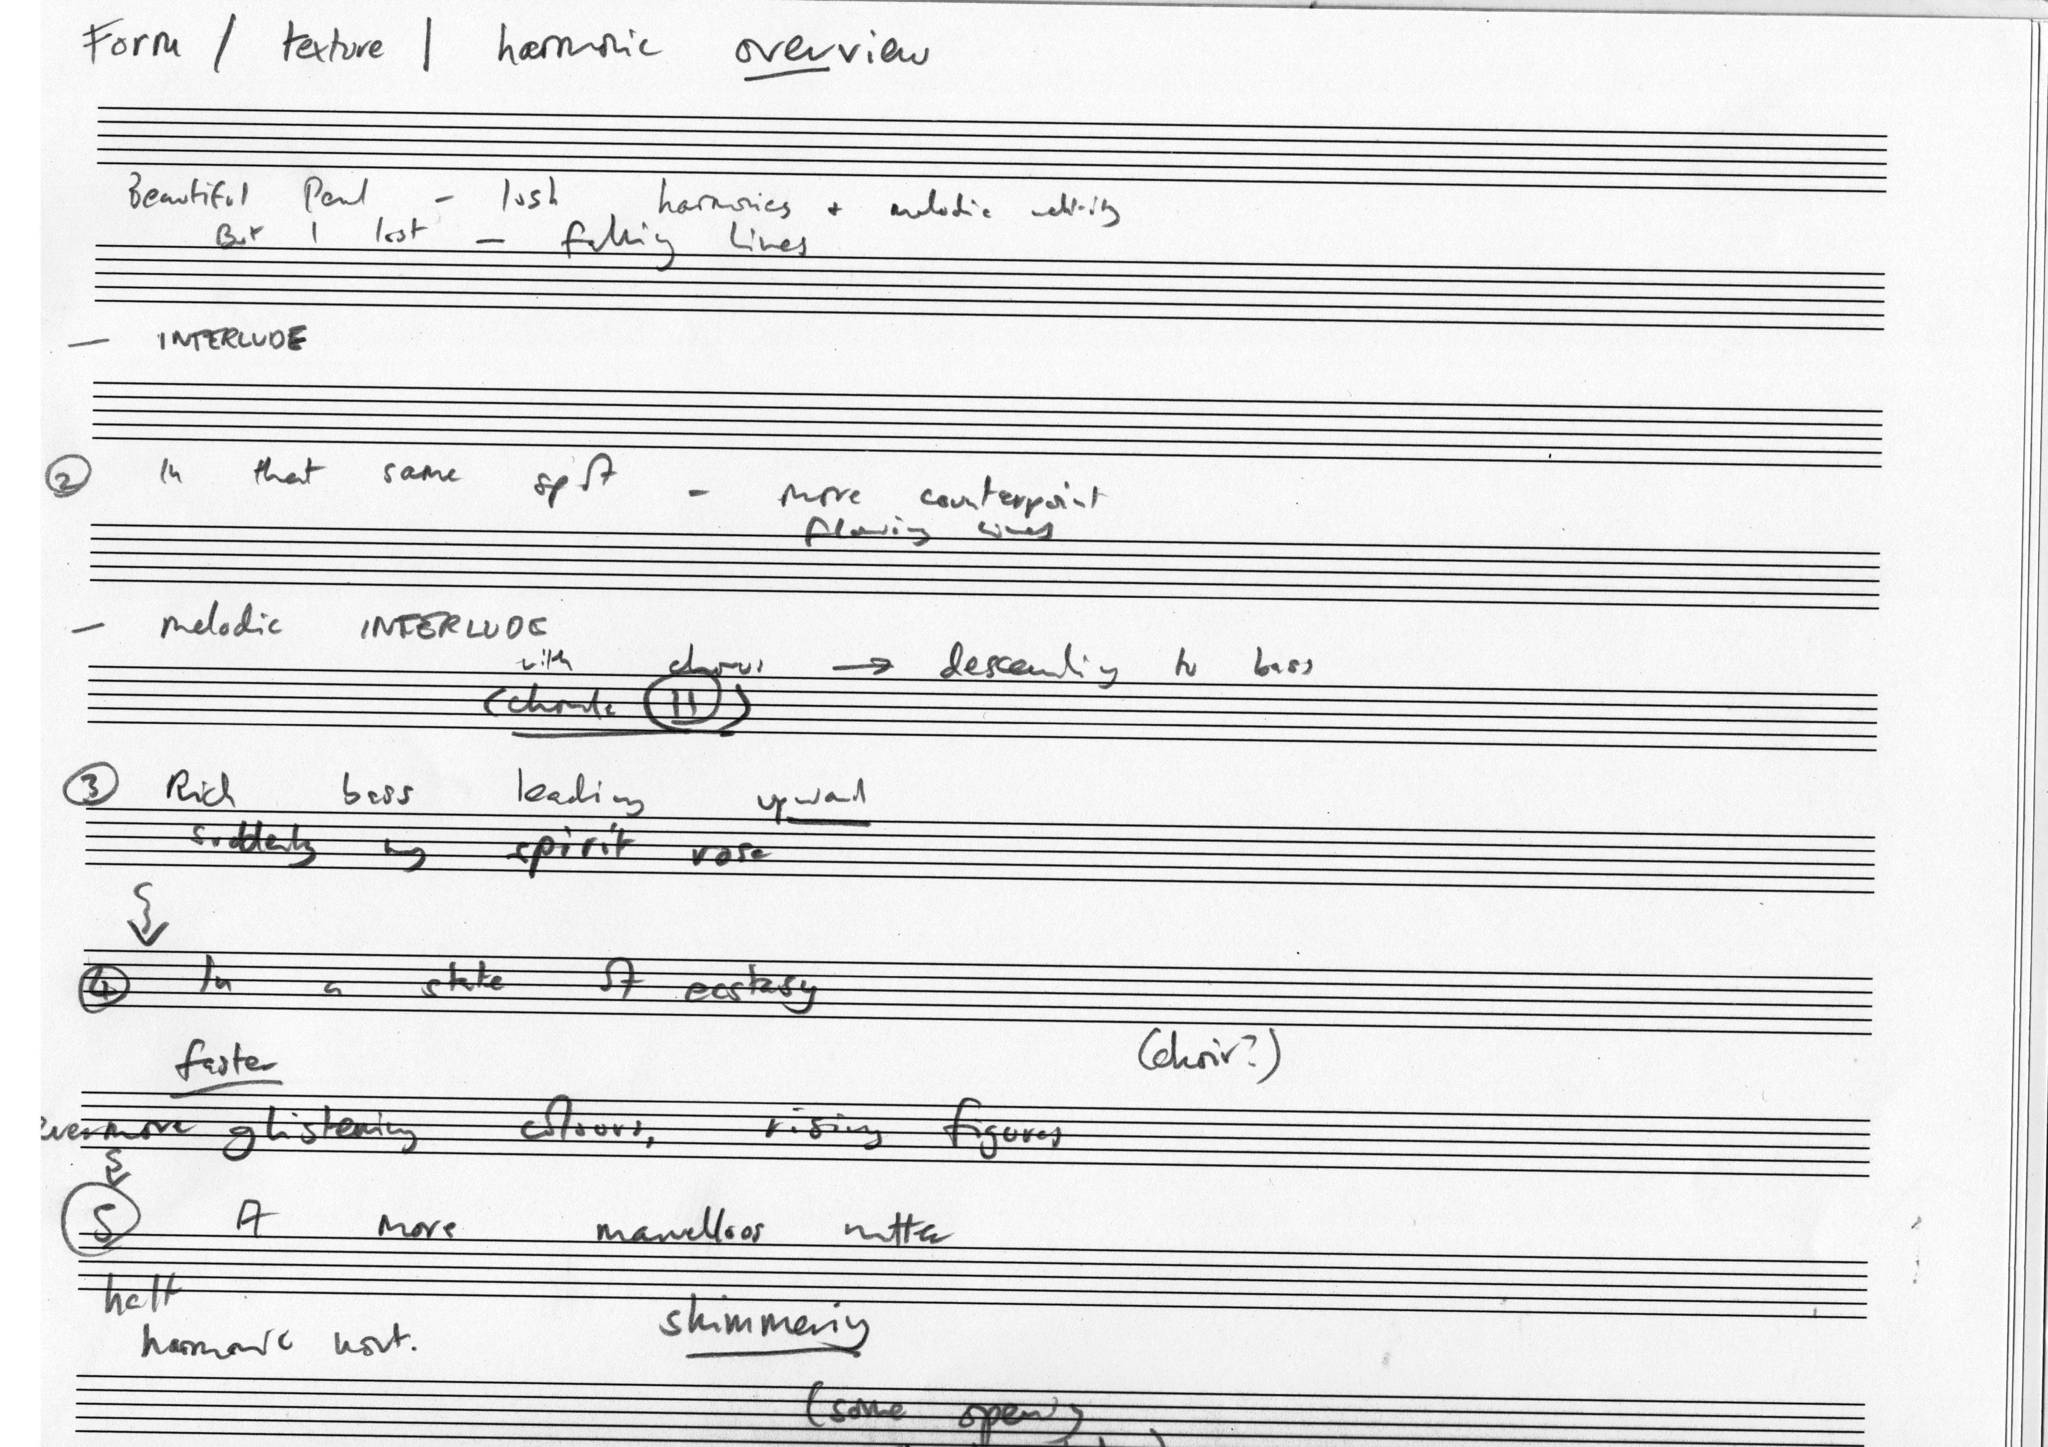 Form / texture / harmonic overview
Beautiful Pearl - lush harmonies + melodic activity
But I lost - falling lines
— INTERLUDE
② In that same spot - more counterpoint
flowing lines
— melodic INTERLUDE
with chorus → descending to bass
(chorale 11)
③ Rich bass leading upward
suddenly my spirit rose
④ In a state of ecstasy
(choir?)
faster
evermore glistening colours, rising figures
⑤ A more marvellous matter
halt
harmonic mvt.
shimmering
(some opening